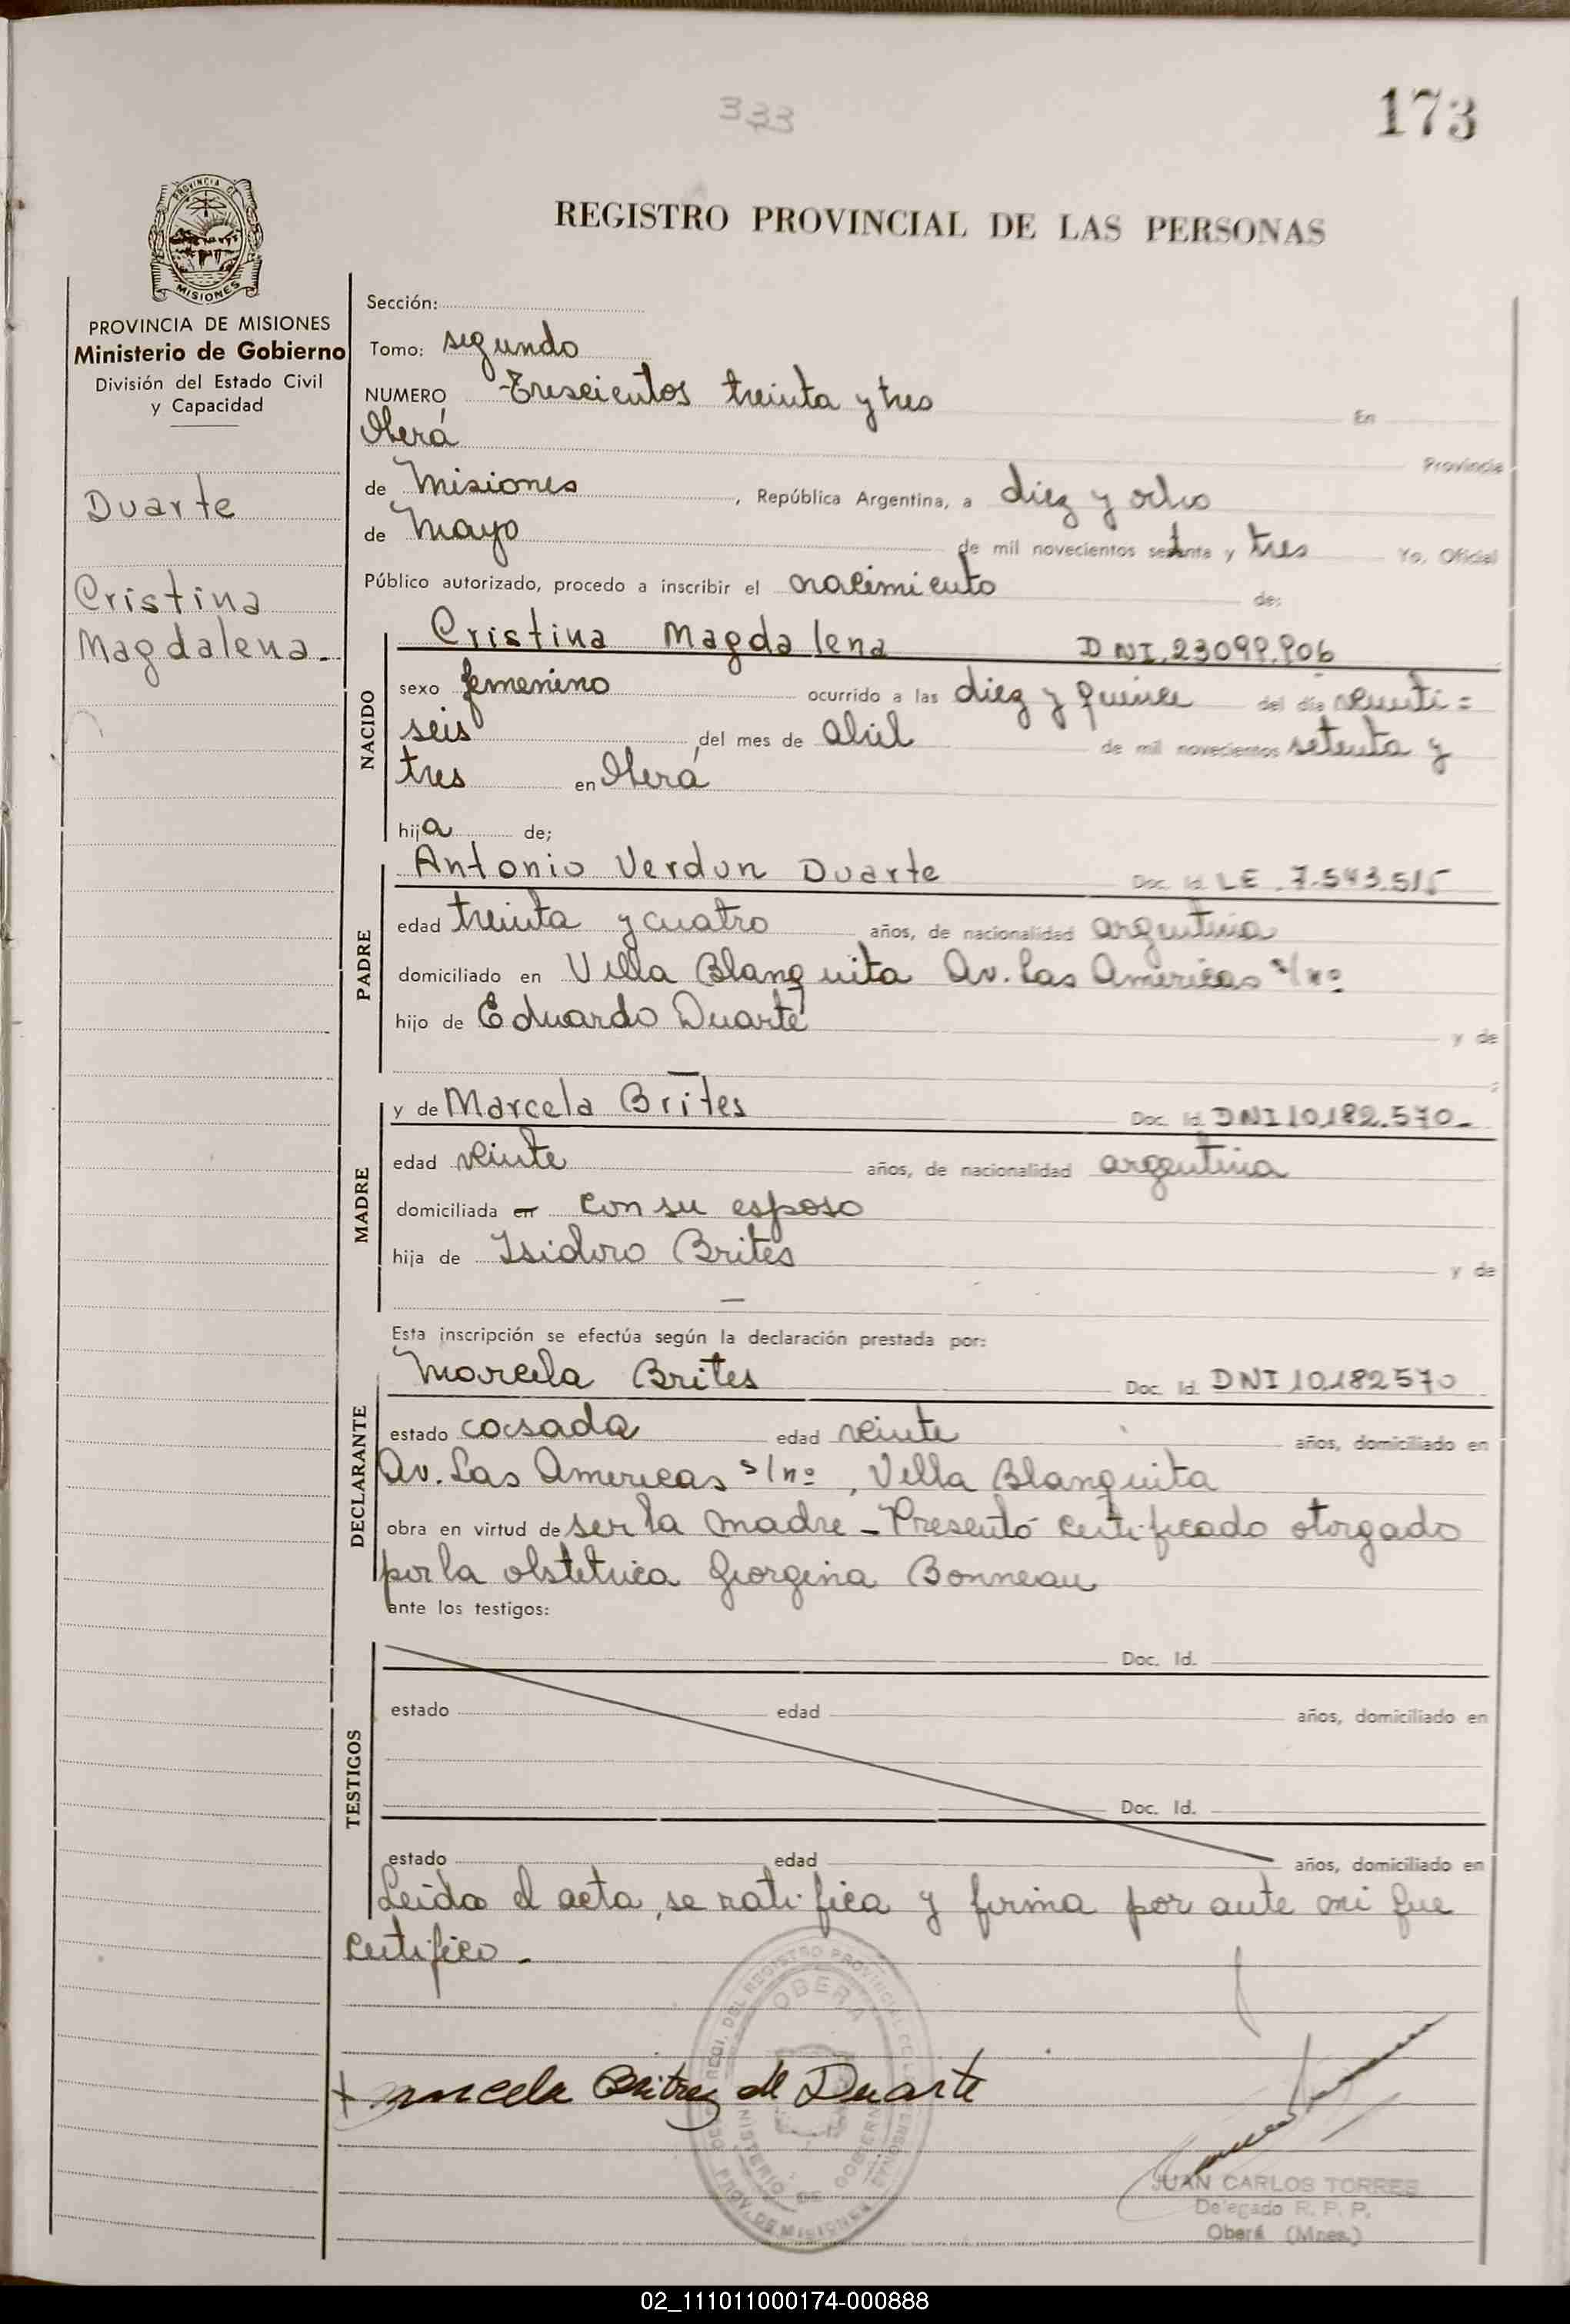 333
173
REGISTRO PROVINCIAL DE LAS PERSONAS
PROVINCIA DE MISIONES
PROVINCIA DE MISIONES
Ministerio de Gobierno
División del Estado Civil
y Capacidad
Duarte
Cristina
Magdalena.
Sección:
Tomo: segundo
NUMERO Trescientos treinta y tres En
Oberá Provincia
de Misiones, República Argentina, a diez y ocho
de Mayo de mil novecientos setenta y tres Yo, Oficial
Público autorizado, procedo a inscribir el nacimiento de:
NACIDO
Cristina Magdalena DNI.
sexo femenino ocurrido a las diez y quince del día veinti=
seis del mes de abril de mil novecientos setenta y
tres en Oberá
hija de;
PADRE
Antonio Verdun Duarte Doc. Id. LE. 7.543.515
edad treinta y cuatro años, de nacionalidad argentina
domiciliado en Villa Blanquita Av. Las Americas s/nº
hijo de Eduardo Duarte y de
—
MADRE
y de Marcela Brites Doc. Id. DNI 10.182.570.
edad veinte años, de nacionalidad argentina
domiciliada en con su esposo
hija de Isidoro Brites y de
—
Esta inscripción se efectúa según la declaración prestada por:
DECLARANTE
Marcela Brites Doc. Id. DNI 10.182570
estado casada edad veinte años, domiciliado en
Av. Las Americas s/nº, Villa Blanquita
obra en virtud de ser la madre - Presentó certificado otorgado
por la obstetrica Georgina Bonneau
ante los testigos:
TESTIGOS
Doc. Id.
estado edad años, domiciliado en
Doc. Id.
estado edad años, domiciliado en
Leida el acta, se ratifica y firma por ante mi que
certifico.
OBERA
MINISTERIO DE GOBIERNO
PROV. DE MISIONES
Marcela Britez de Duarte
JUAN CARLOS TORRES
Delegado R. P. P.
Oberá (Mnes.)
02_111011000174-000888